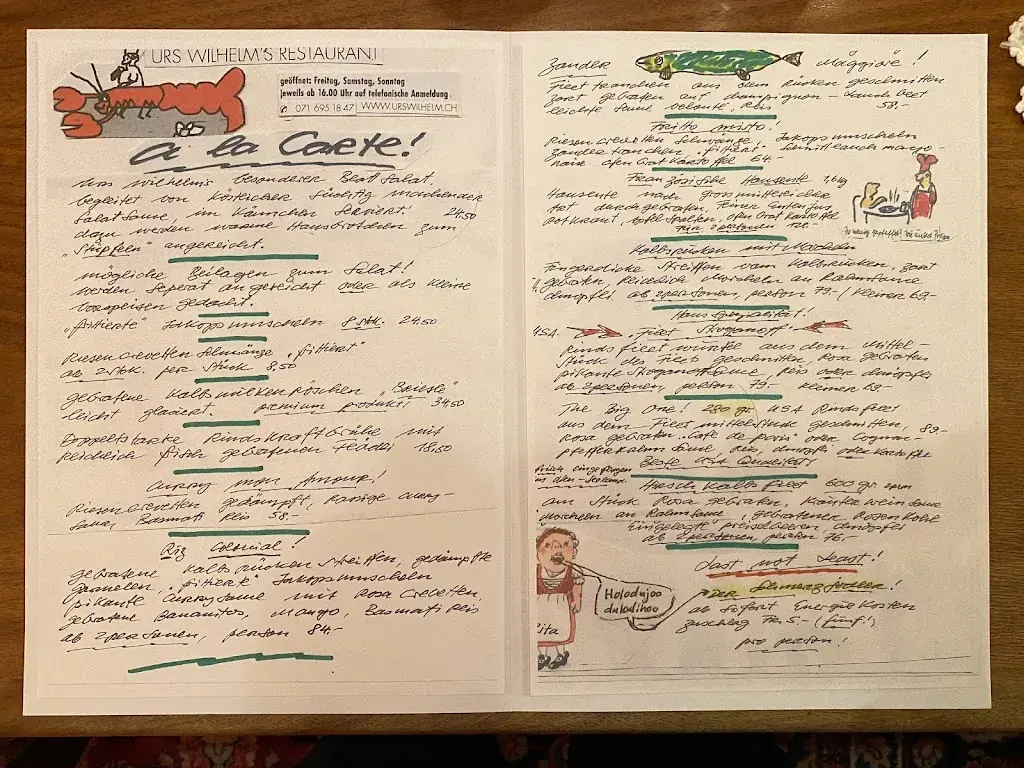 URS WILHELM'S RESTAURANT
geöffnet: Freitag, Samstag, Sonntag
jeweils ab 16.00 Uhr auf telefonische Anmeldung
071 695 18 47 WWW.URSWILHELM.CH
à la Carte!
Urs Wilhelm's besonderer Blatt Salat,
begleitet von köstlicher süchtig machender
Salat Sauce im Kännchen serviert. 24.50
dazu werden warme Hausbrötchen zum
"Stüpfeln" angereicht.
mögliche Beilagen zum Salat!
werden seperat angereicht oder als kleine
Vorspeisen gedacht.
"frittierte" Jakobsmuscheln 8 Stk. 24.50
Riesencrevetten Schwänze "frittiert"
ab 2 Stk. per Stück 8.50
gebratene Kalbsmilken Röschen "Briesle"
leicht glasiert. premium produkt! 34.50
Doppeltstarke Rindskraftbrühe mit
reichlich frisch gebratenen Flädli 18.50
Curry mon Amour!
Riesencrevetten gedämpft, rassige Curry-
Sauce, Basmati Reis 58.-
Riz Colonial!
gebratene Kalbsrücken Streifen, gedämpfte
"frittierte" Jakobsmuscheln
pikante Curry Sauce mit Rosa Crevetten,
gebratene Bananitos, Mango, Basmati Reis
ab 2 personen, person 84.-
Zander Maggiore!
Filet tranchen aus dem Rücken geschnitten
zart gebraten auf Champignon - Lauch Beet
leichte Sauce Velouté, Reis 58.-
Fritto misto!
Riesencrevetten Schwänze Jakobsmuscheln
Zander tranchen "frittiert" Schnittlauch mayo-
naise Ofen Grat Kartoffel 64.-
Französische Hausente 1,6 kg
Hausente nach grossmütterliche
Art durchgebraten, feiner Enten Jus
Rotkraut, Apfel Spalten, Ofen Grat Kartoffel
für 2 personen
Kalbsrücken mit Morcheln
Fingerdicke Streifen vom Kalbsrücken, zart
gebraten, reichlich Morcheln an Rahmsauce
dampfrei, ab 2 personen, person 79.- / kleiner 69.-
Haus Spezialität!
USA. Filet Stroganoff
Rindsfilet würfel aus dem Mittel-
stück des Filets geschnitten, Rosa gebraten
pikante Stroganoff Sauce, Reis oder dampfrei
ab 2 personen, person 79.- kleiner 69.-
The Big One! 280 gr. USA Rindsfilet
aus dem Filet mittelstück geschnitten, 89.-
Rosa gebraten "Café de paris" oder Cognac-
pfefferrahm Sauce Reis, dampfrei oder Kartoffel
Beste USA Qualität!
frisch eingeflogen
Hirsch Kalbs Filet 600 gr
am Stück Rosa gebraten Rahmsauce
Morcheln an Rahmsauce, gebratener Rosenkohl
Eingelegte preiselbeeren, dampfrei
ab 2 personen, person 76.-
Last not Least!
Der Schmerzforeller!
ab sofort Energie Kosten
Zuschlag Fr. 5.- (fünf!)
pro person!
Holodujoo
duliodihoo
Rita